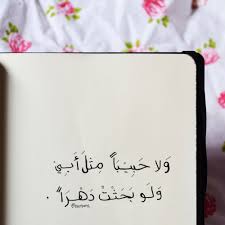 وَلا حَبِيْبَاً مِثلَ أَبِي
وَلَو بَحَثتُ دَهْرَاً .